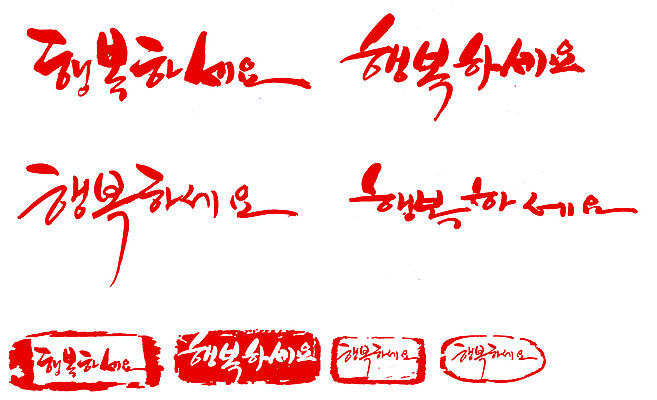 행복하세요 행복하세요
행복하세요 행복하세요
행복하세요 행복하세요 행복하세요 행복하세요